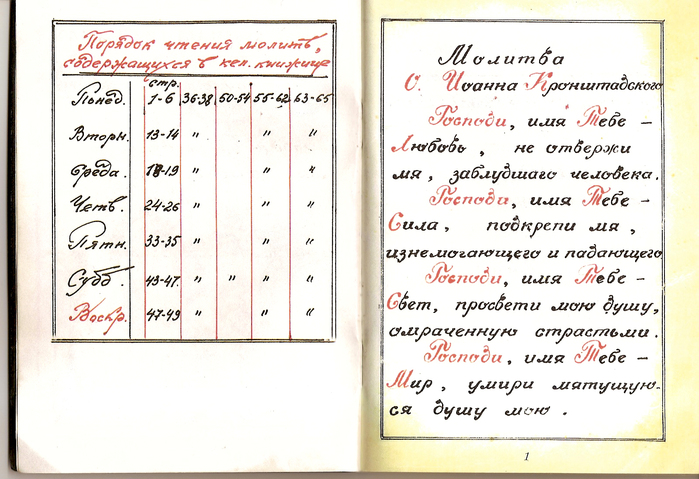 Порядок чтения молитв,
содержащихся в кел. книжице
стр.
Понед. 1-6 36-38 50-54 55-62 63-65
Вторн. 13-14 " " "
Среда. 18-19 " " "
Четв. 24-26 " " "
Пятн. 33-35 " " "
Субб. 43-47. " " " "
Воскр. 47-49 " " "
Молитва
О. Иоанна Кронштадского
Господи, имя Тебе –
Любовь, не отвержи
мя, заблудшаго человека.
Господи, имя Тебе –
Сила, подкрепи мя,
изнемогающего и падающего
Господи, имя Тебе –
Свет, просвети мою душу,
омраченную страстьми.
Господи, имя Тебе –
Мир, умири мятущую-
ся душу мою.
1